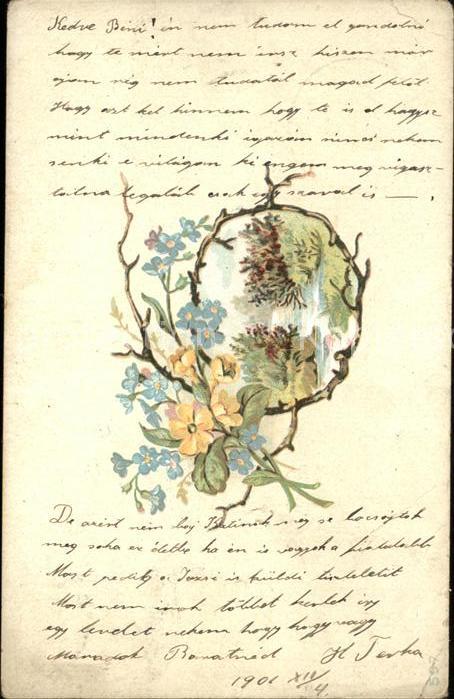 Kedve Béni! én nem tudom el gondolni
hogy te miért nem irsz hiszen már
ojan rég nem tudatál magad felöl
Hogy azt kel hinnem hogy te is el hagysz
mint mindenki igazán nincs nekem
senki e világon ki engem meg vigasz-
talna legaláb csak egy szóval is — .
De azért nem baj
meg soha az életbe ha én is vagyok a fiatalabb
Most pedig a Józsi is küldi tiszteletit
Most nem irok többet kérlek irj
egy levelet nekem hogy hogy vagy
Maradok Barátnéd H Terka
1901 XII/4.